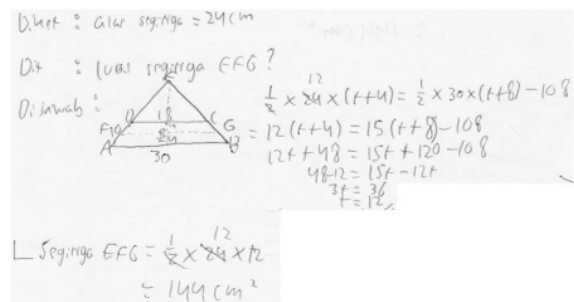 Diket : alas segitiga = 24 cm
Dit : luas segitiga EFG ?
Dijawab :
E
D 18 C
F 4 G
8
24
A B
30
1/2 × 24 12 × (t+4) = 1/2 × 30 × (t+8) - 108
= 12 (t+4) = 15 (t+8) - 108
12t + 48 = 15t + 120 - 108
48-12 = 15t - 12t
3t = 36
t = 12
L Segitiga EFG = 1/2 × 24 12 × 12
= 144 cm²